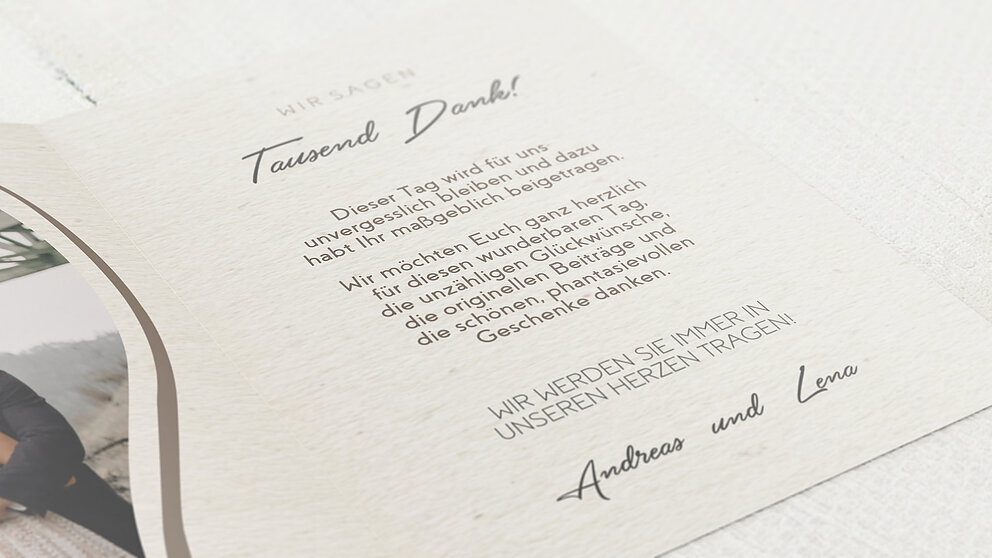 WIR SAGEN
Tausend Dank!
Dieser Tag wird für uns
unvergesslich bleiben und dazu
habt Ihr maßgeblich beigetragen.
Wir möchten Euch ganz herzlich
für diesen wunderbaren Tag,
die unzähligen Glückwünsche,
die originellen Beiträge und
die schönen, phantasievollen
Geschenke danken.
WIR WERDEN SIE IMMER IN
UNSEREN HERZEN TRAGEN!
Andreas und Lena